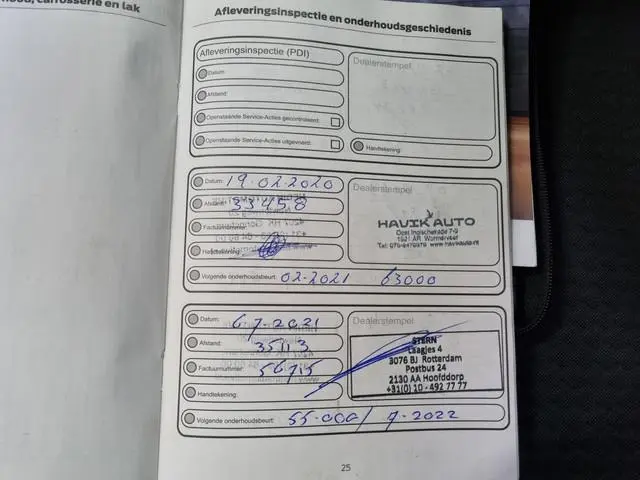 carrosserie en lak
Afleveringsinspectie en onderhoudsgeschiedenis
Afleveringsinspectie (PDI)
Datum:
Afstand:
Openstaande Service-Acties gecontroleerd:
Openstaande Service-Acties uitgevoerd:
Dealerstempel
Handtekening:
Datum: 19.02.2020
Afstand: 33458
Factuurnummer:
Handtekening:
Volgende onderhoudsbeurt: 02-2021 63000
Dealerstempel
HAVIK AUTO
Oost Indischekade 7-9
1521 AR Wormerveer
Datum: 6-7-2021
Afstand: 35113
Factuurnummer: 56715
Handtekening:
Volgende onderhoudsbeurt: 55.000/ 7-2022
Dealerstempel
STERN
Laagjes 4
3076 BJ Rotterdam
Postbus 24
2130 AA Hoofddorp
+31(0) 10 - 492 77 77
25